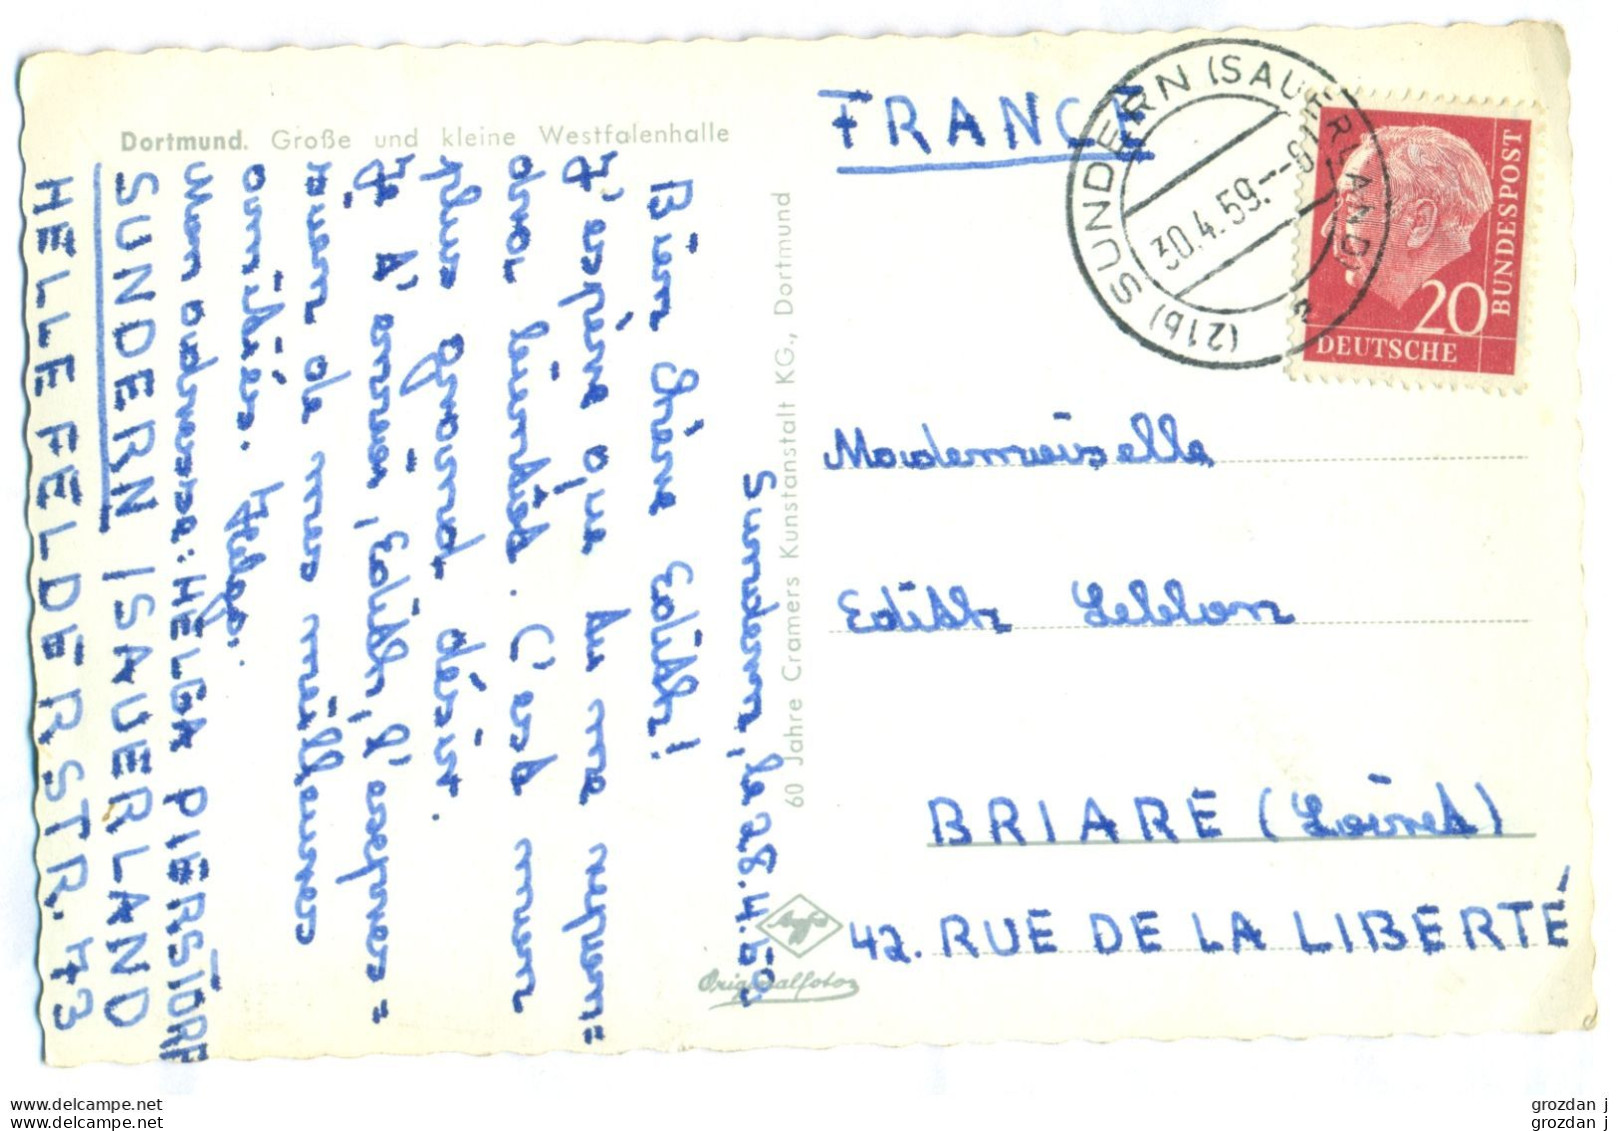 Dortmund. Große und kleine Westfalenhalle
60 Jahre Cramers Kunstanstalt KG., Dortmund
Agfa
Originalfoto
FRANCE
(21b) SUNDERN (SAUERLAND)
30.4.59.
a
20
DEUTSCHE
BUNDESPOST
Sundern, le 28.4.59
Bien chère Edith!
J'espère que tu me répon=
dras bientôt. C'est mon
plus grand désir.
Je t'assure, Edith, d'éprou=
une de mes meilleures
amitiés. Helga.
Mon adresse: HELGA PIERSIORF
SUNDERN / SAUERLAND
HELLEFELDERSTR. 43
Mademoiselle
Edith Leblon
BRIARE (Loiret)
42. RUE DE LA LIBERTÉ
grozdan j
grozdan j
www.delcampe.net
www.delcampe.net